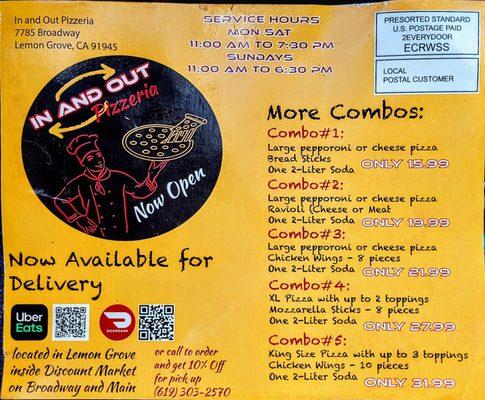 In and Out Pizzeria
7785 Broadway
Lemon Grove, CA 91945
SERVICE HOURS
MON-SAT
11:00 AM TO 7:30 PM
SUNDAYS
11:00 AM TO 6:30 PM
PRESORTED STANDARD
U.S. POSTAGE PAID
2EVERYDOOR
ECRWSS
LOCAL
POSTAL CUSTOMER
IN AND OUT
Pizzeria
Now Open
Now Available for
Delivery
Uber
Eats
DOORDASH
located in Lemon Grove
inside Discount Market
on Broadway and Main
or call to order
and get 10% Off
for pick up
(619) 303-2570
More Combos:
Combo#1:
Large pepporoni or cheese pizza
Bread Sticks
One 2-Liter Soda ONLY 15.99
Combo#2:
Large pepporoni or cheese pizza
Ravioli (Cheese or Meat
One 2-Liter Soda ONLY 19.99
Combo#3:
Large pepporoni or cheese pizza
Chicken Wings - 8 pieces
One 2-Liter Soda ONLY 21.99
Combo#4:
XL Pizza with up to 2 toppings
Mozzarella Sticks - 8 pieces
One 2-Liter Soda ONLY 27.99
Combo#5:
King Size Pizza with up to 3 toppings
Chicken Wings - 10 pieces
One 2-Liter Soda ONLY 31.99